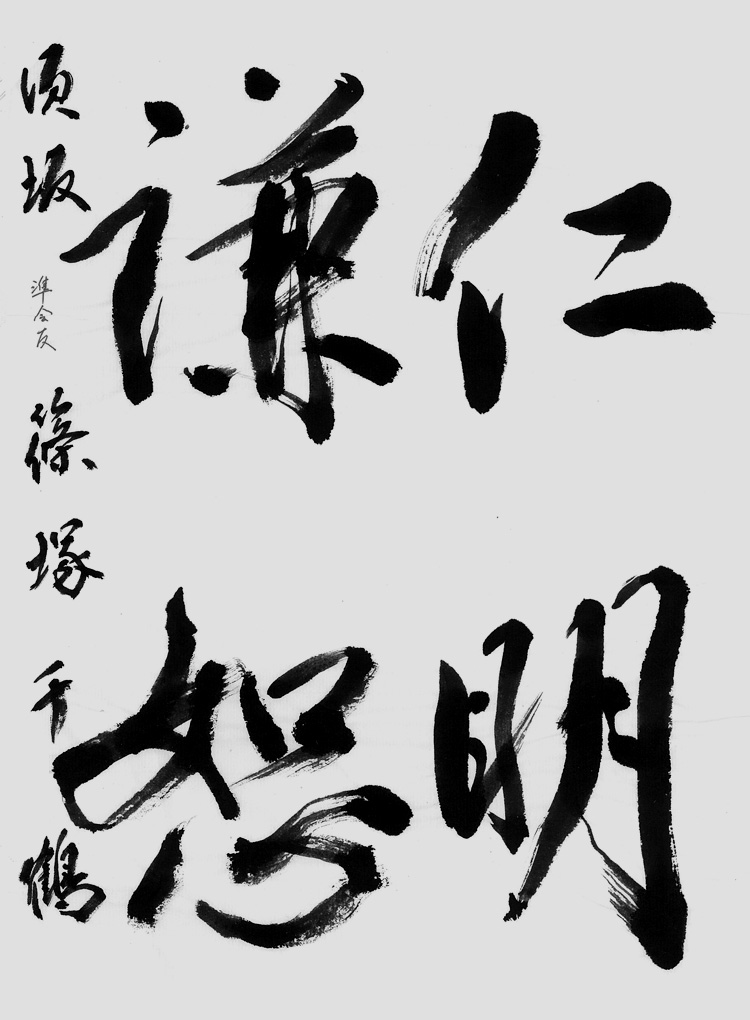 仁明
謙恕
須坂 準会友 篠塚千鶴